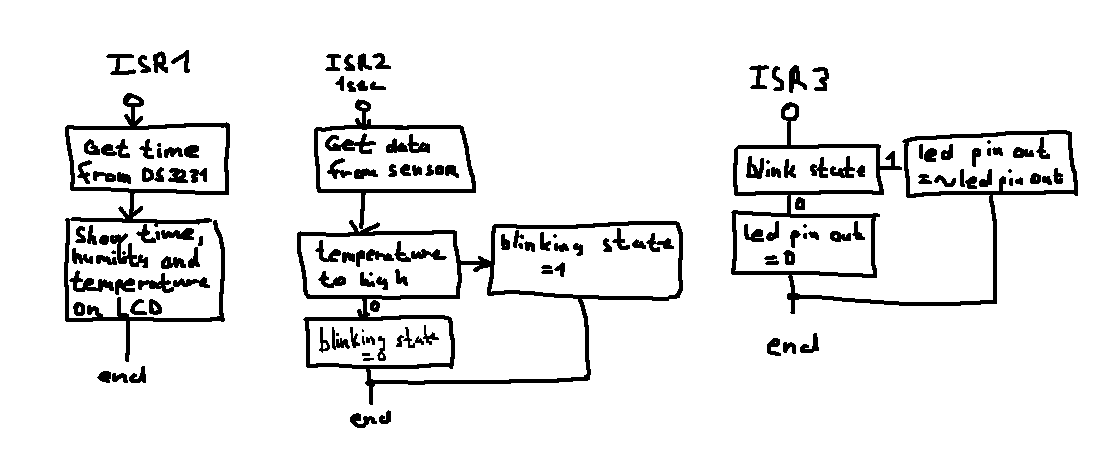 ISR1
Get time
from DS3231
Show time,
humility and
temperature
on LCD
end
ISR2
1sec
Get data
from sensor
temperature
to high
blinking state
=1
0
blinking state
=0
end
ISR3
blink state
1
led pin out
=~led pin out
0
led pin out
=0
end